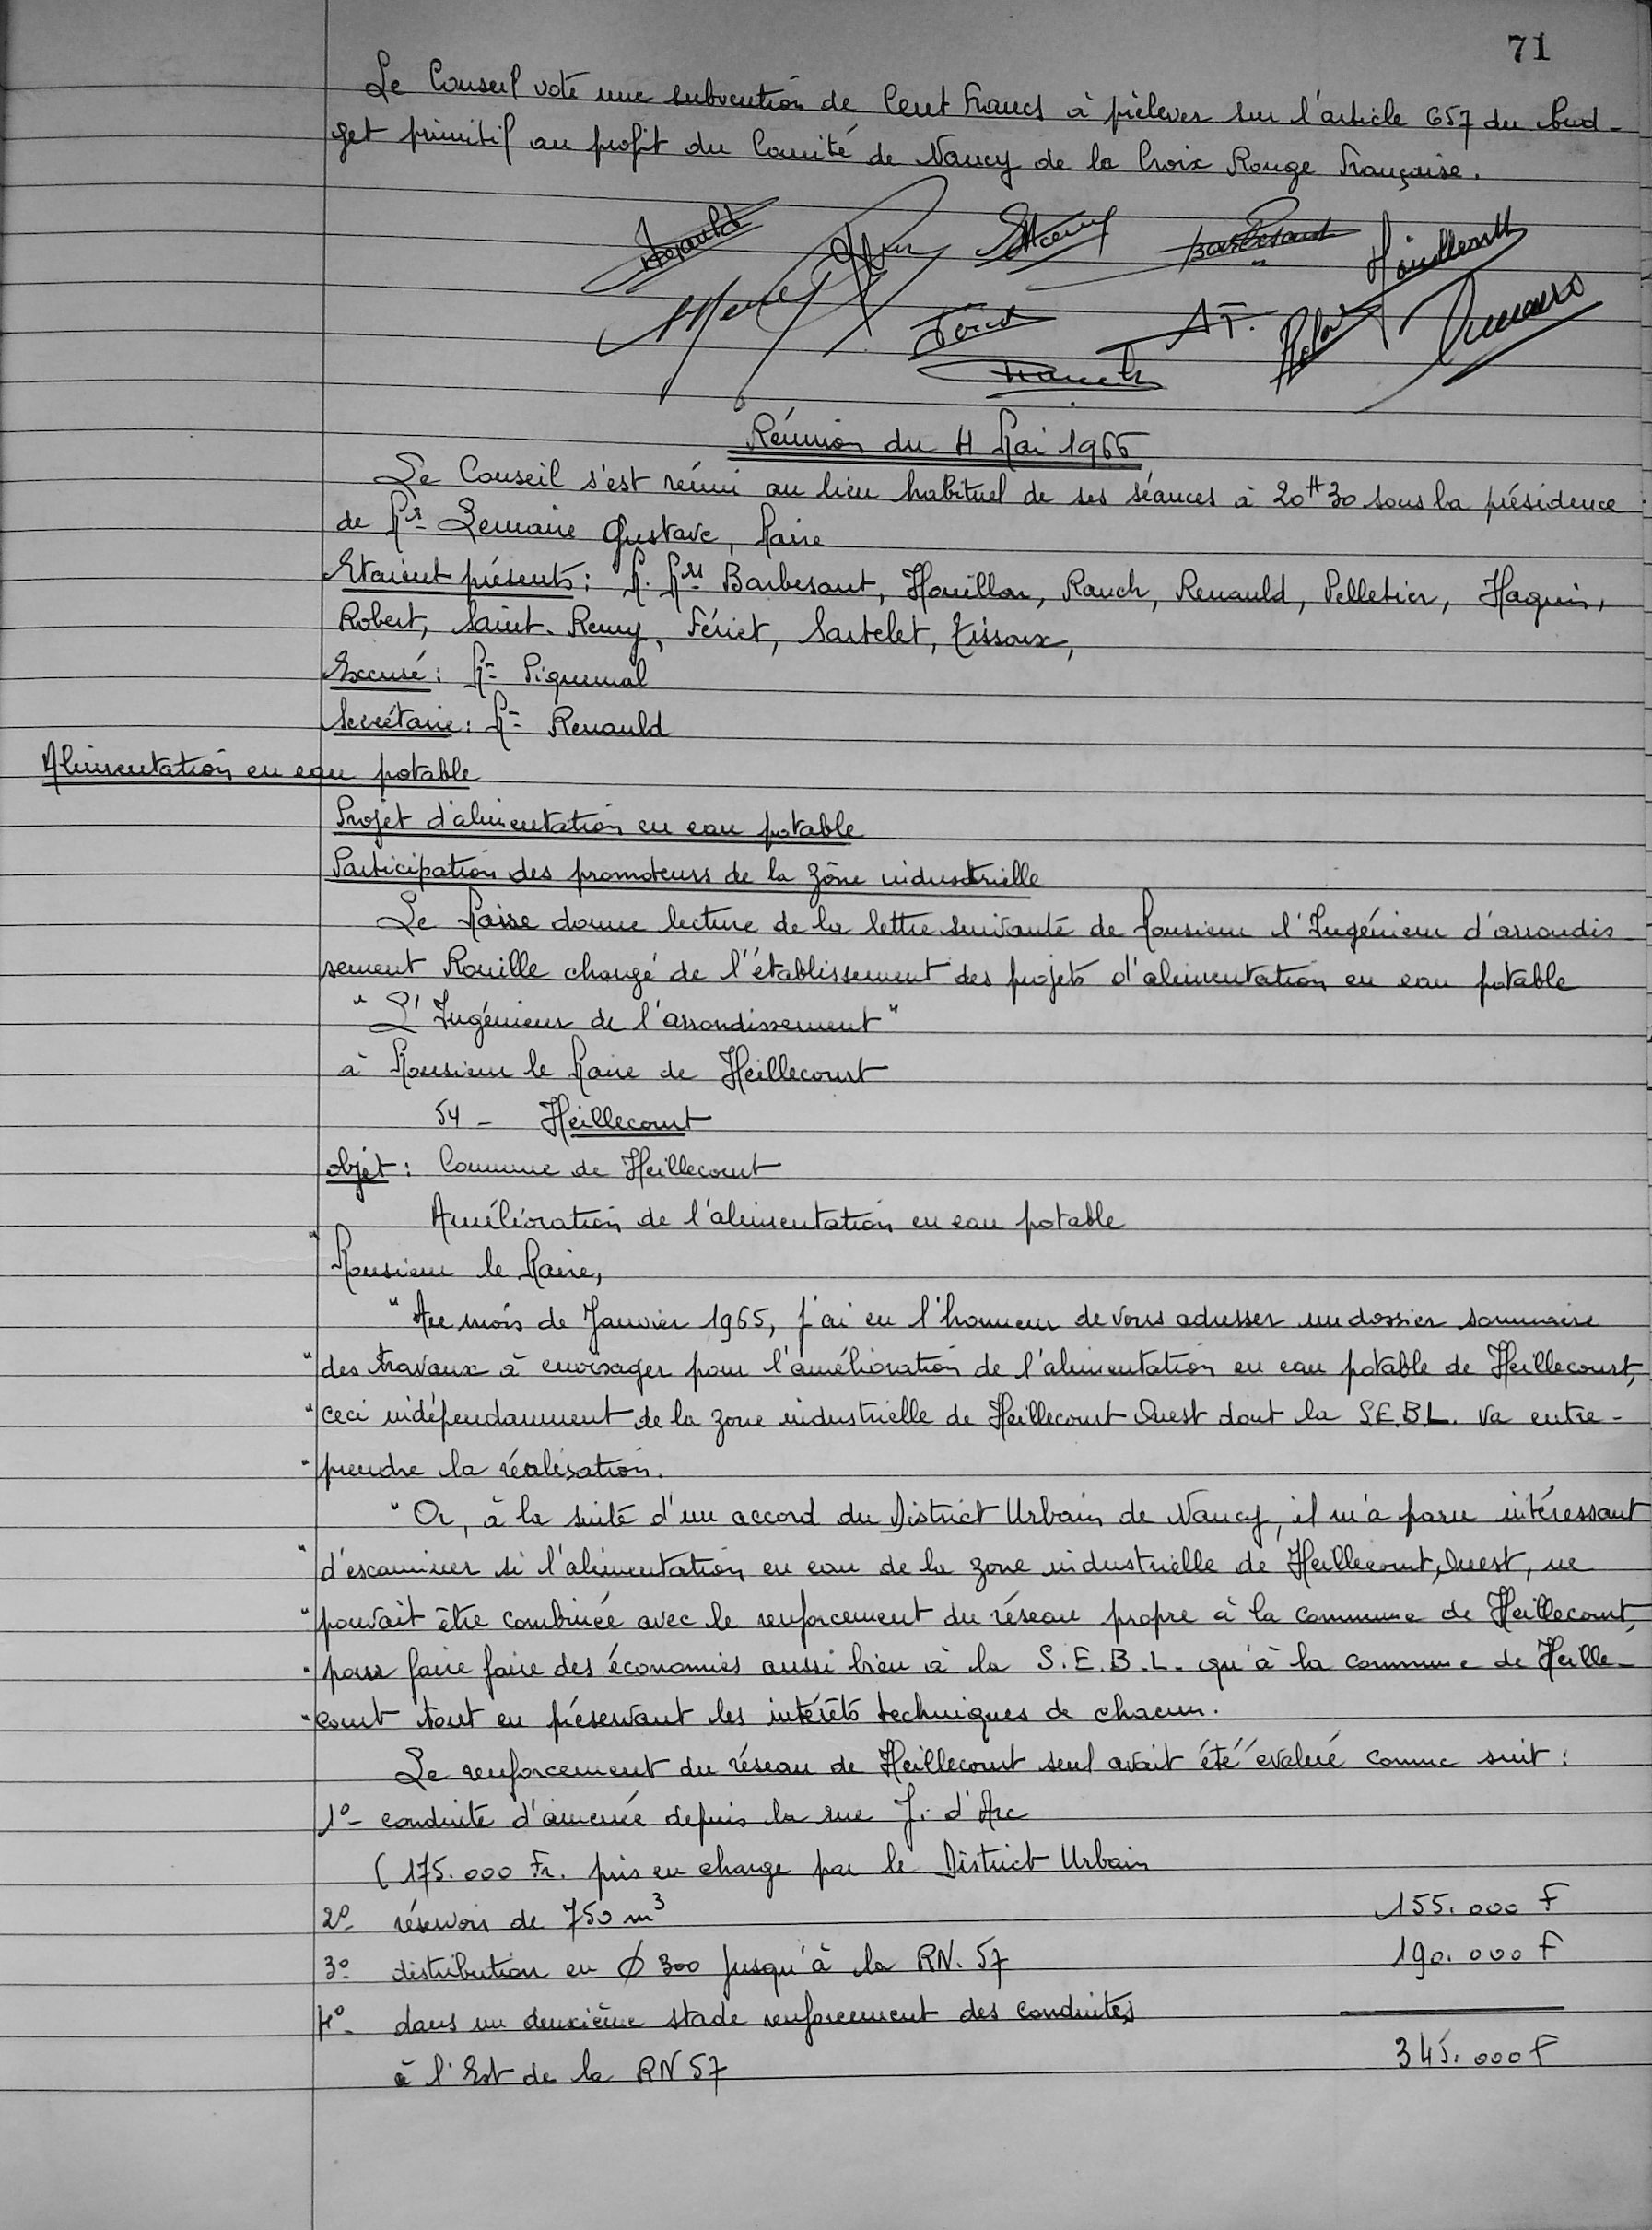 71
Le Conseil vote une subvention de Cent Francs à prélever sur l'article 657 du Bud-
get primitif au profit du Comité de Nancy de la Croix Rouge Française.
Renauld
Barbesant Houillon
Fériet
A F.
Rauch
Réunion du 4 Mai 1966
Le Conseil s'est réuni au lieu habituel de ses séances à 20H30 sous la présidence
de Mr Lemaire Gustave, Maire
Etaient présents : M. Mrs Barbesant, Houillon, Rauch, Renauld, Pelletier, Haquin,
Robert, Saint-Remy, Fériet, Sartelet, Tissoux,
Excusé : M= Piquemal
Secrétaire : M= Renauld
Alimentation en eau potable
Projet d'alimentation en eau potable
Participation des promoteurs de la zône industrielle
Le Maire donne lecture de la lettre suivante de Monsieur l'Ingénieur d'arrondis
sement Rouille chargé de l'établissement des projets d'alimentation en eau potable
" L'Ingénieur de l'arrondissement "
à Monsieur le Maire de Heillecourt
54 - Heillecourt
objet : Commune de Heillecourt
Amélioration de l'alimentation en eau potable
" Monsieur le Maire,
" Au mois de Janvier 1965, j'ai eu l'honneur de vous adresser un dossier sommaire
" des travaux à envisager pour l'amélioration de l'alimentation en eau potable de Heillecourt,
" ceci indépendamment de la zone industrielle de Heillecourt Ouest dont la S.E.B.L. va entre-
" prendre la réalisation.
" Or, à la suite d'un accord du District Urbain de Nancy, il m'a paru intéressant
" d'escaminer si l'alimentation en eau de la zone industrielle de Heillecourt, Ouest, ne
" pouvait être combinée avec le renforcement du réseau propre à la commune de Heillecourt,
" pour faire faire des économies aussi bien à la S.E.B.L. qu'à la commune de Heille-
" court tout en préservant les intérêts techniques de chacun.
Le renforcement du réseau de Heillecourt seul avait été évalué comme suit :
1°- conduite d'amenée depuis la rue J. d'Arc
( 175.000 Fr. pris en charge par le District Urbain
2°- réservoir de 750 m3 155.000 F
3°- distribution en Ø 300 jusqu'à la RN. 57 190.000 F
4°- dans un deuxième stade renforcement des conduites
à l'Est de la RN 57 345.000 F